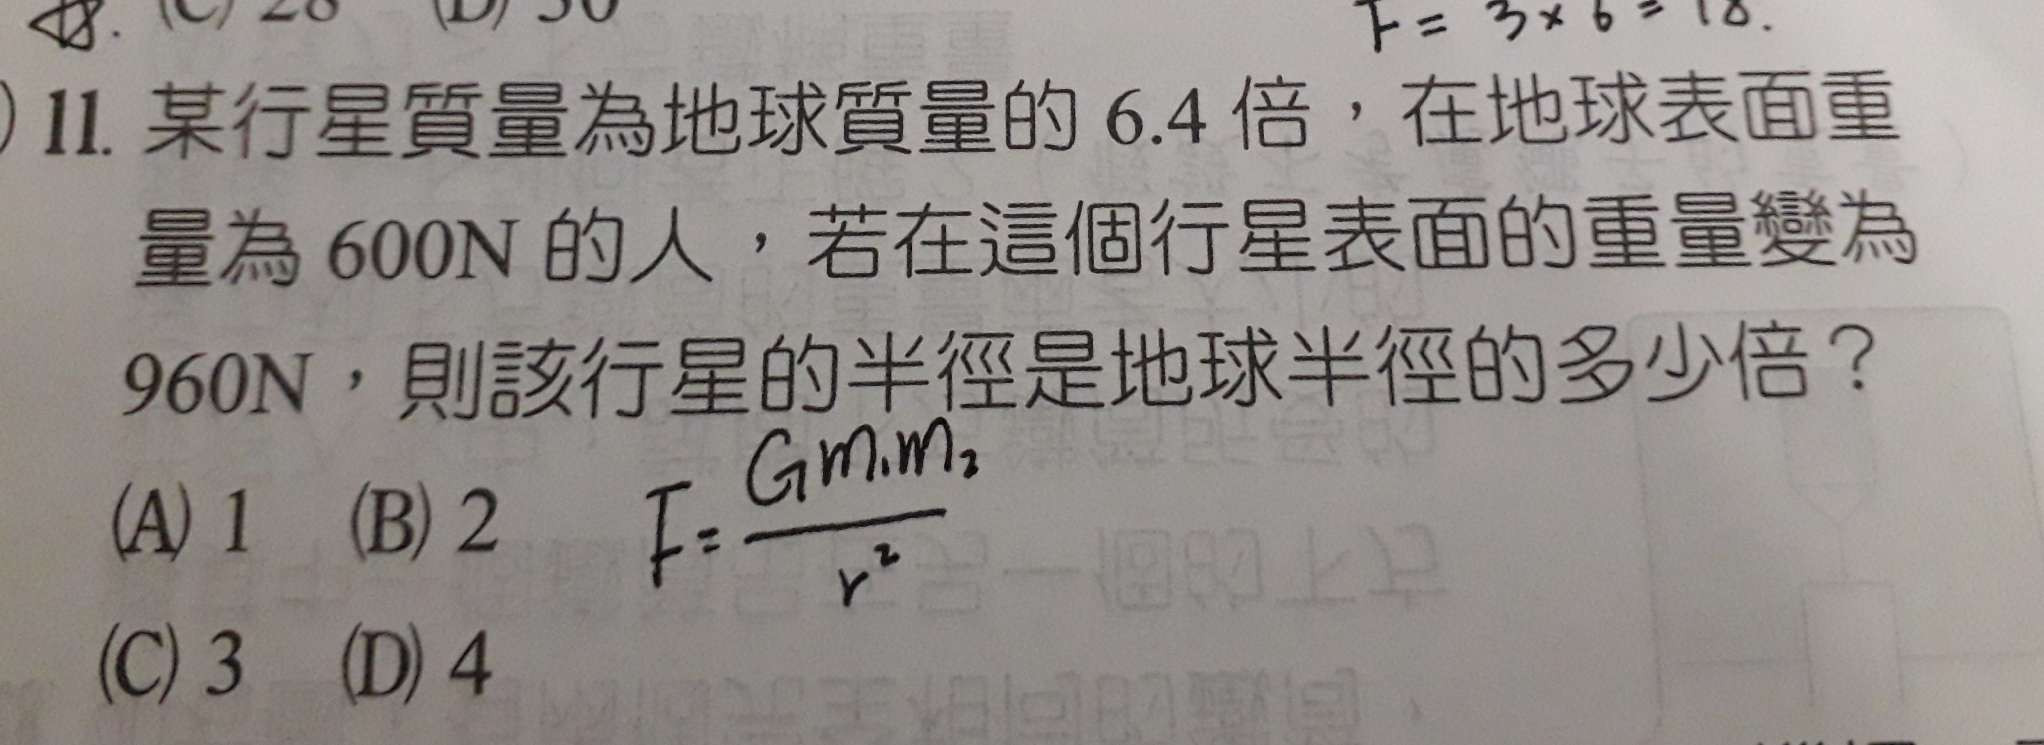 (C) 28 (D) 30
F = 3×6 = 18.
11. 某行星質量為地球質量的 6.4 倍，在地球表面重
量為 600N 的人，若在這個行星表面的重量變為
960N，則該行星的半徑是地球半徑的多少倍？
(A) 1 (B) 2
F = Gm₁m₂ / r²
(C) 3 (D) 4